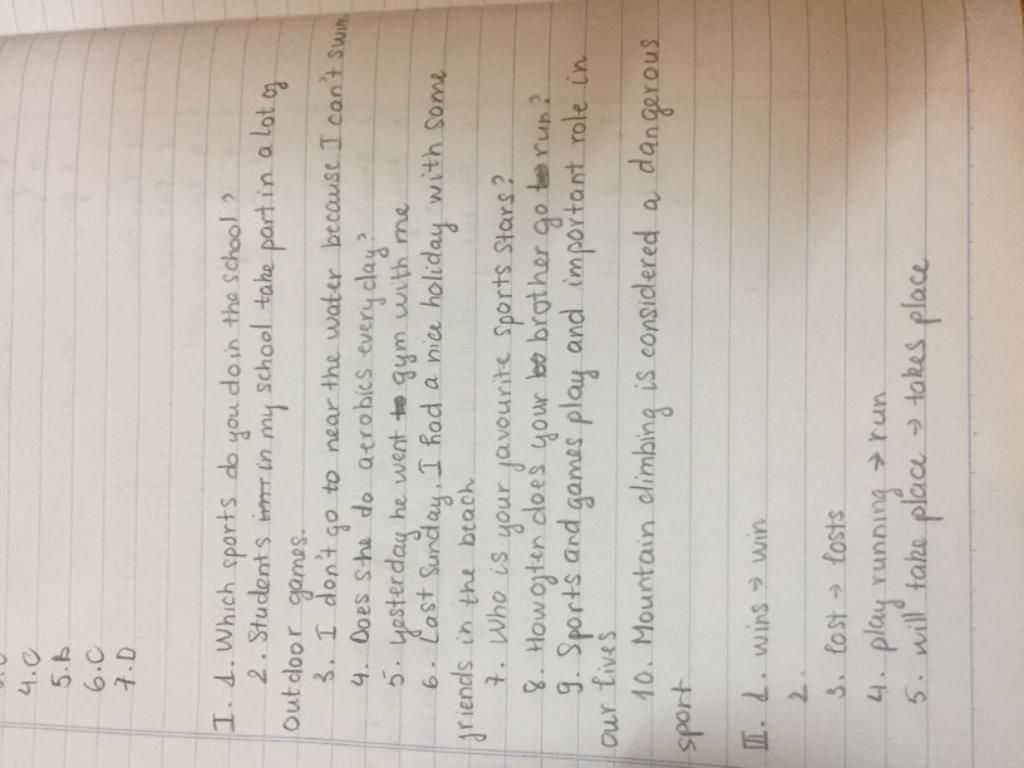 4.C
5.b
6.C
7.D
I. 1. Which sports do you do in the school?
2. Students in my school take part in a lot of
outdoor games.
3. I don't go to near the water because I can't swim
4. Does she do aerobics everyday?
5. yesterday he went gym with me
6. Last Sunday, I had a nice holiday with some
friends in the beach
7. Who is your favourite sports stars?
8. How often does your brother go run?
9. Sports and games play and important role in
our lives
10. Mountain climbing is considered a dangerous
sport
III. 1. wins → win
2.
3. lost → losts
4. play running → run
5. will take place → takes place